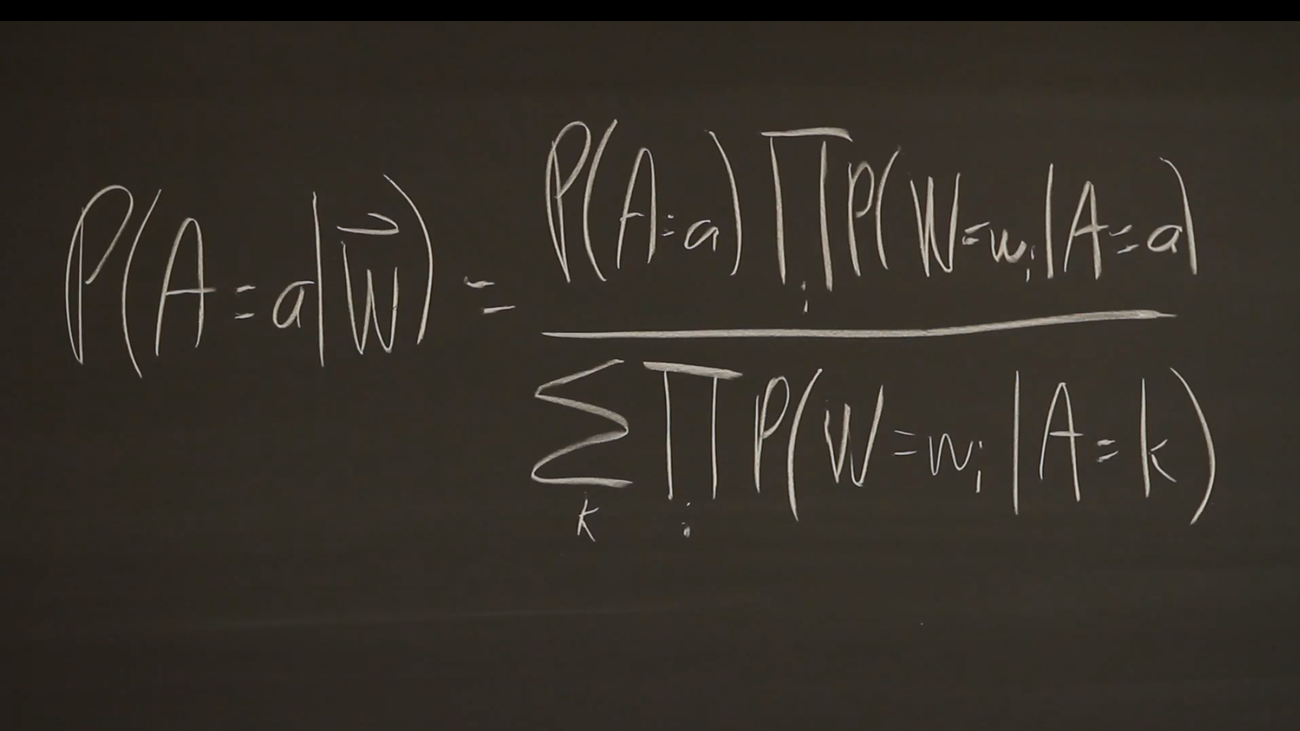 P(A=a|W⃗) = P(A=a) ∏ᵢ P(W=wᵢ|A=a)
∑ₖ ∏ᵢ P(W=wᵢ|A=k)